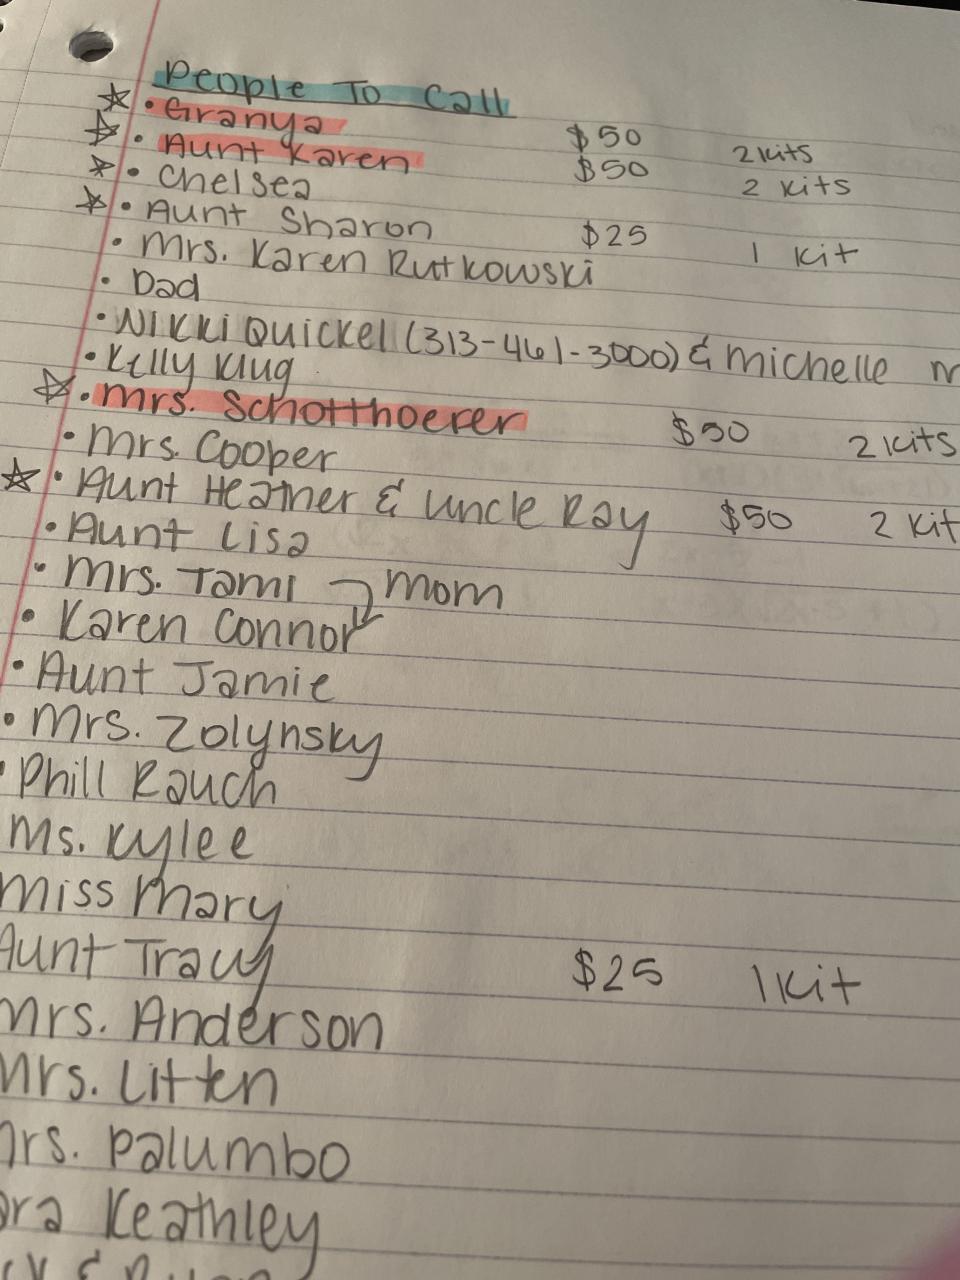 People To Call
☆ • Granya $50 2 kits
☆ • Aunt Karen $50 2 kits
☆ • Chelsea
☆ • Aunt Sharon $25 1 kit
• Mrs. Karen Rutkowski
• Dad
• Nikki Quickel (313-461-3000) & Michelle
• Kelly Klug
☆ • Mrs. Schotthoefer $50 2 kits
• Mrs. Cooper
☆ • Aunt Heather & Uncle Ray $50 2 kit
• Aunt Lisa
• Mrs. Tami → Mom
• Karen Connor
• Aunt Jamie
• Mrs. Zolynsky
• Phill Rauch
Ms. Kylee
Miss Mary
Aunt Tracy $25 1 kit
Mrs. Anderson
Mrs. Litten
Mrs. Palumbo
ara Keathley